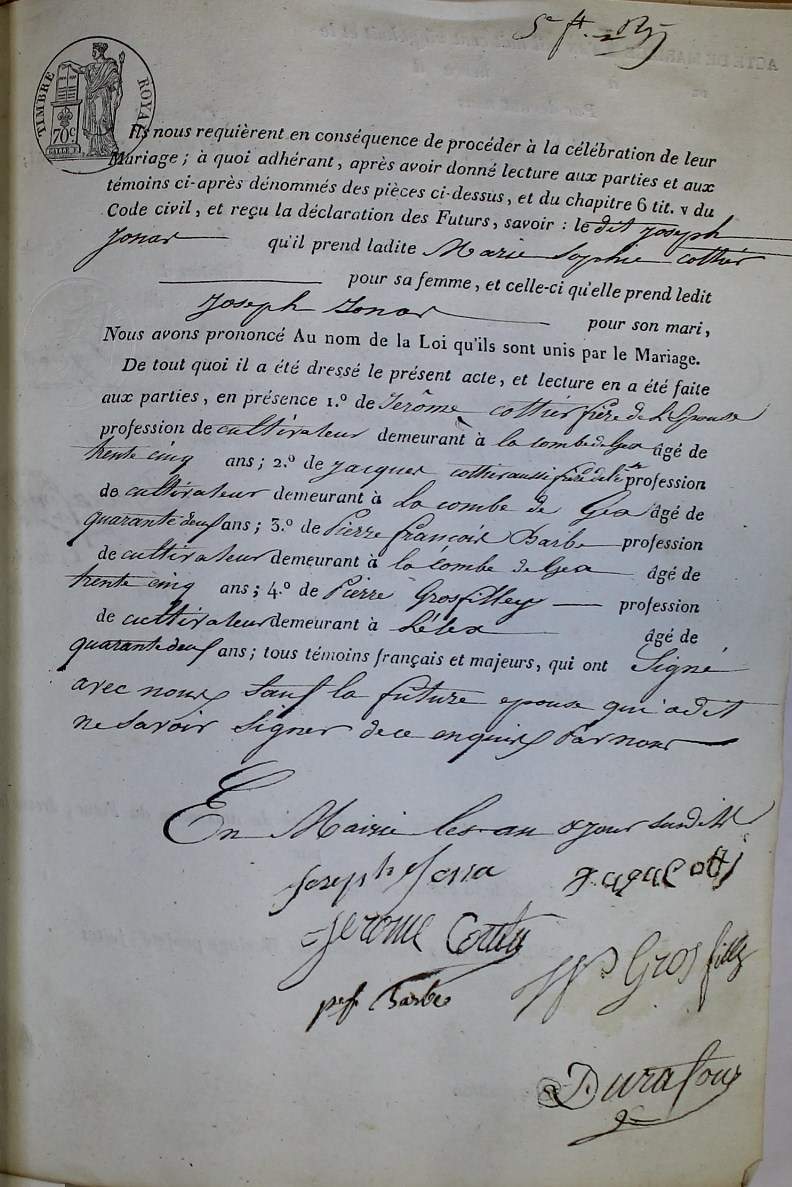 TIMBRE ROYAL
70 c.
Ils nous requièrent en conséquence de procéder à la célébration de leur
Mariage ; à quoi adhérant, après avoir donné lecture aux parties et aux
témoins ci-après dénommés des pièces ci-dessus, et du chapitre 6 tit. v du
Code civil, et reçu la déclaration des Futurs, savoir : le dit joseph
Jonas qu'il prend ladite Marie Sophie cottier
pour sa femme, et celle-ci qu'elle prend ledit
Joseph Jonas pour son mari,
Nous avons prononcé Au nom de la Loi qu'ils sont unis par le Mariage.
De tout quoi il a été dressé le présent acte, et lecture en a été faite
aux parties, en présence 1.º de Jerôme cottier frère de l'Epouse
profession de cultivateur demeurant à la combe de Gex âgé de
trente cinq ans ; 2.º de jacques cottier aussi frère profession
de cultivateur demeurant à La combe de Gex âgé de
quarante deux ans ; 3.º de Pierre françois Barbe profession
de cultivateur demeurant à la combe de Gex âgé de
trente cinq ans ; 4.º de Pierre Grosfilley profession
de cultivateur demeurant à Lélex âgé de
quarante deux ans ; tous témoins français et majeurs, qui ont Signé
avec nous sauf la future epouse qui a dit
ne savoir signer de ce enquise Par nous
En Mairie les an & jour susdits
joseph Jona
JEROME Cottier
p. f. Barbe
Grosfilley
Durafour